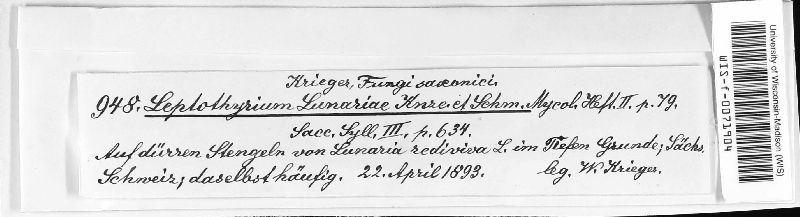 Krieger, Fungi saxonici.
948. Leptothyrium Lunariae Knze. et Schm. Mycol. Heft. II. p. 79.
Sacc. Syll. III, p. 634.
Auf dürren Stengeln von Lunaria rediviva L. im Tiefen Grunde, Sächs.
Schweiz; daselbst häufig. 22. April 1893. leg. W. Krieger.
University of Wisconsin-Madison (WIS)
WIS-f-0071904